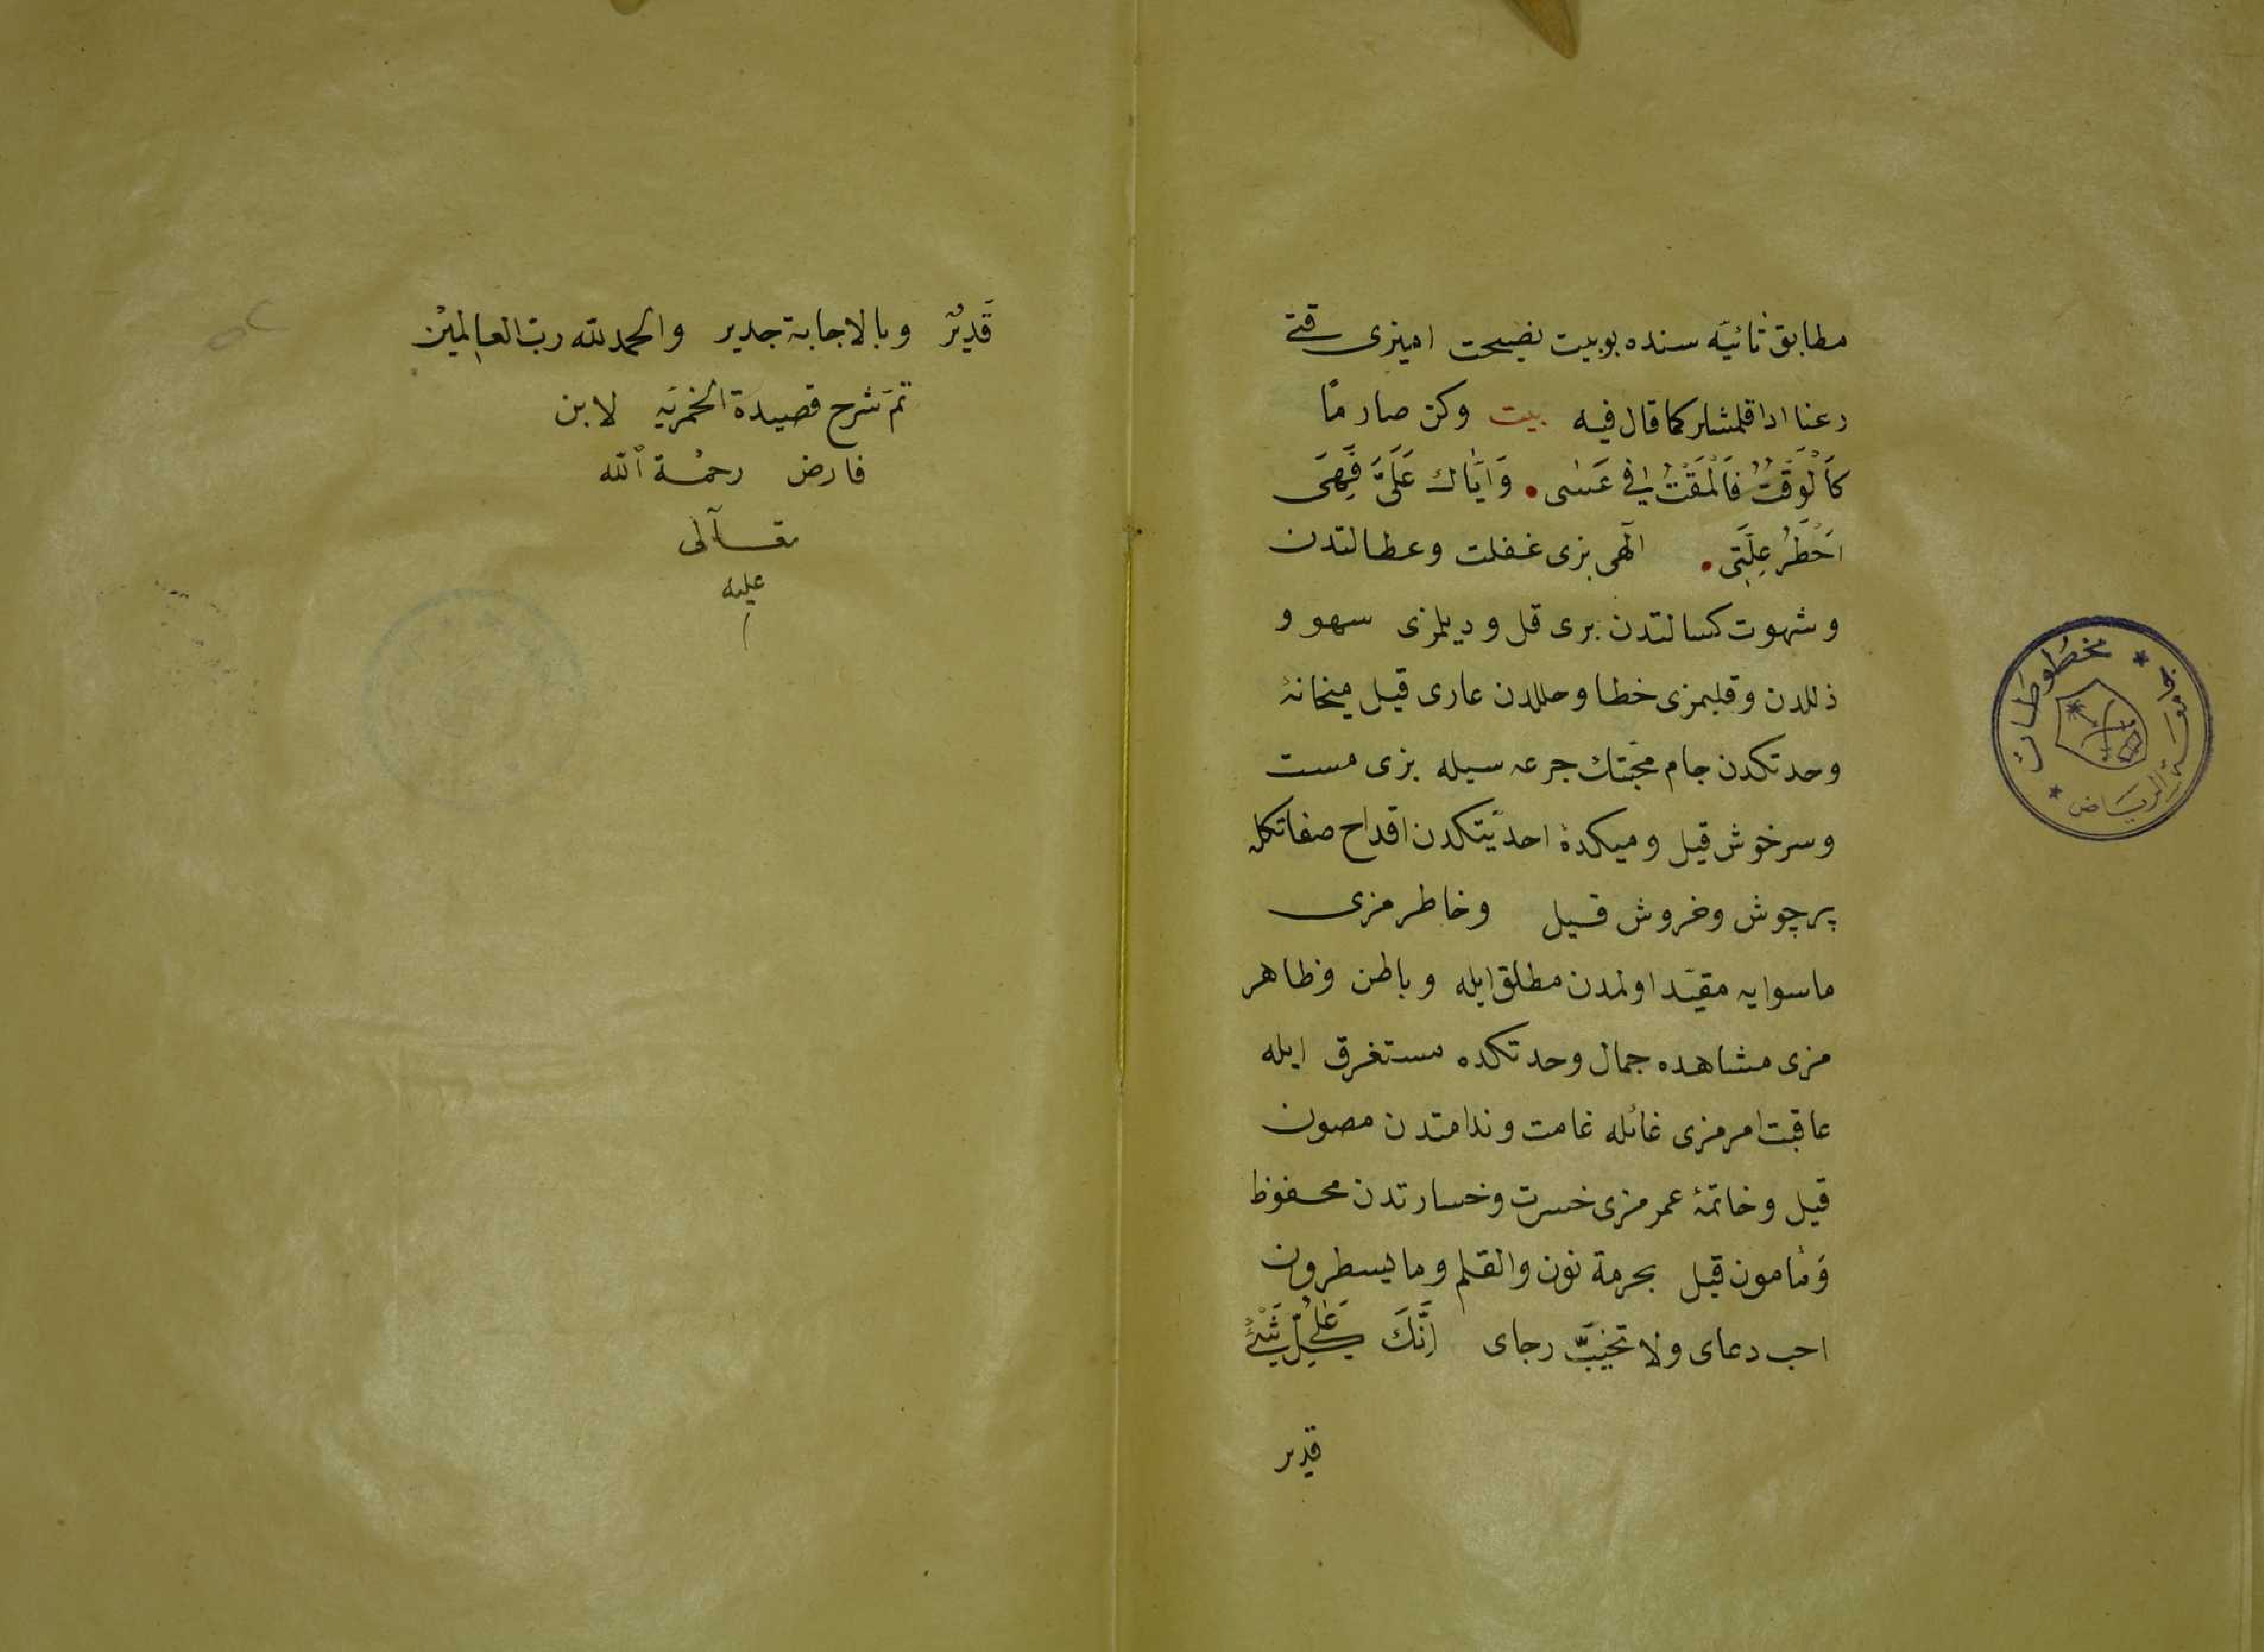 مطابق تائيّه سنده بو بيت نصيحت اميزى قتى
رعنا ادا قلمشلر كما قال فيه بيت وكن صارمًا
كَالْوَقْتِ فَالْمَقْتُ فى عَسٰى • وَايَّاك عَلَىَّ فَهِىَ
اَخْطَرُ عِلَّتِى • الٓهى بزى غفلت وعطالتدن
و شهوت كسالتدن برى قل و ديلمزى سهو و
ذللدن و قلبمزى خطا وخللدن عارى قيل ميخانهٔ
وحدتكدن جام محبّتك جرعه سيله بزى مست
و سرخوش قيل و ميكدهٔ احديّتكدن اقداح صفاتكله
پرچوش وخروش قيل وخاطرمزى
ماسوايه مقيّد اولمدن مطلق ايله و باطن و ظاهر
مزى مشاهده جمال وحدتكده مستغرق ايله
عاقبت امرمزى غائله غامت و ندامتدن مصون
قيل و خاتمهٔ عمرمزى خسرت و خسارتدن محفوظ
وَ مأمون قيل بحرمة نون والقلم وما يسطرون
اجب دعاى ولا تخيّب رجاى اِنَّكَ عَلٰى كُلِّ شَىْءٍ
قدير
قَدِيرٌ وبالاجابة جدير والحمد لله ربّ العالمين
تمّ شرح قصيدة الخمريّه لابن
فارض رحمة الله
تعالى
عليه
جامعة الرياض
مخطوطات